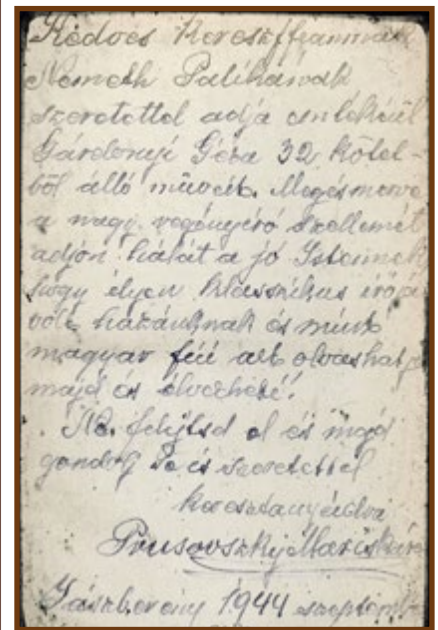 Kedves Keresztfiamnak
Németh Palikának
szeretettel adja emlékül
Gárdonyi Géza 32 kötet-
ből álló művét. Megismerve
a nagy regényíró szellemét
adjon hálát a jó Istennek
hogy ilyen klasszikus írója
volt hazánknak és mint
magyar fiú azt olvashatja
majd és élvezheti!
Ne felejtsd el és majd
gondolj rá is szeretettel
keresztanyádra
Prusovszky Mariskára
Jászberény 1944 szeptemb